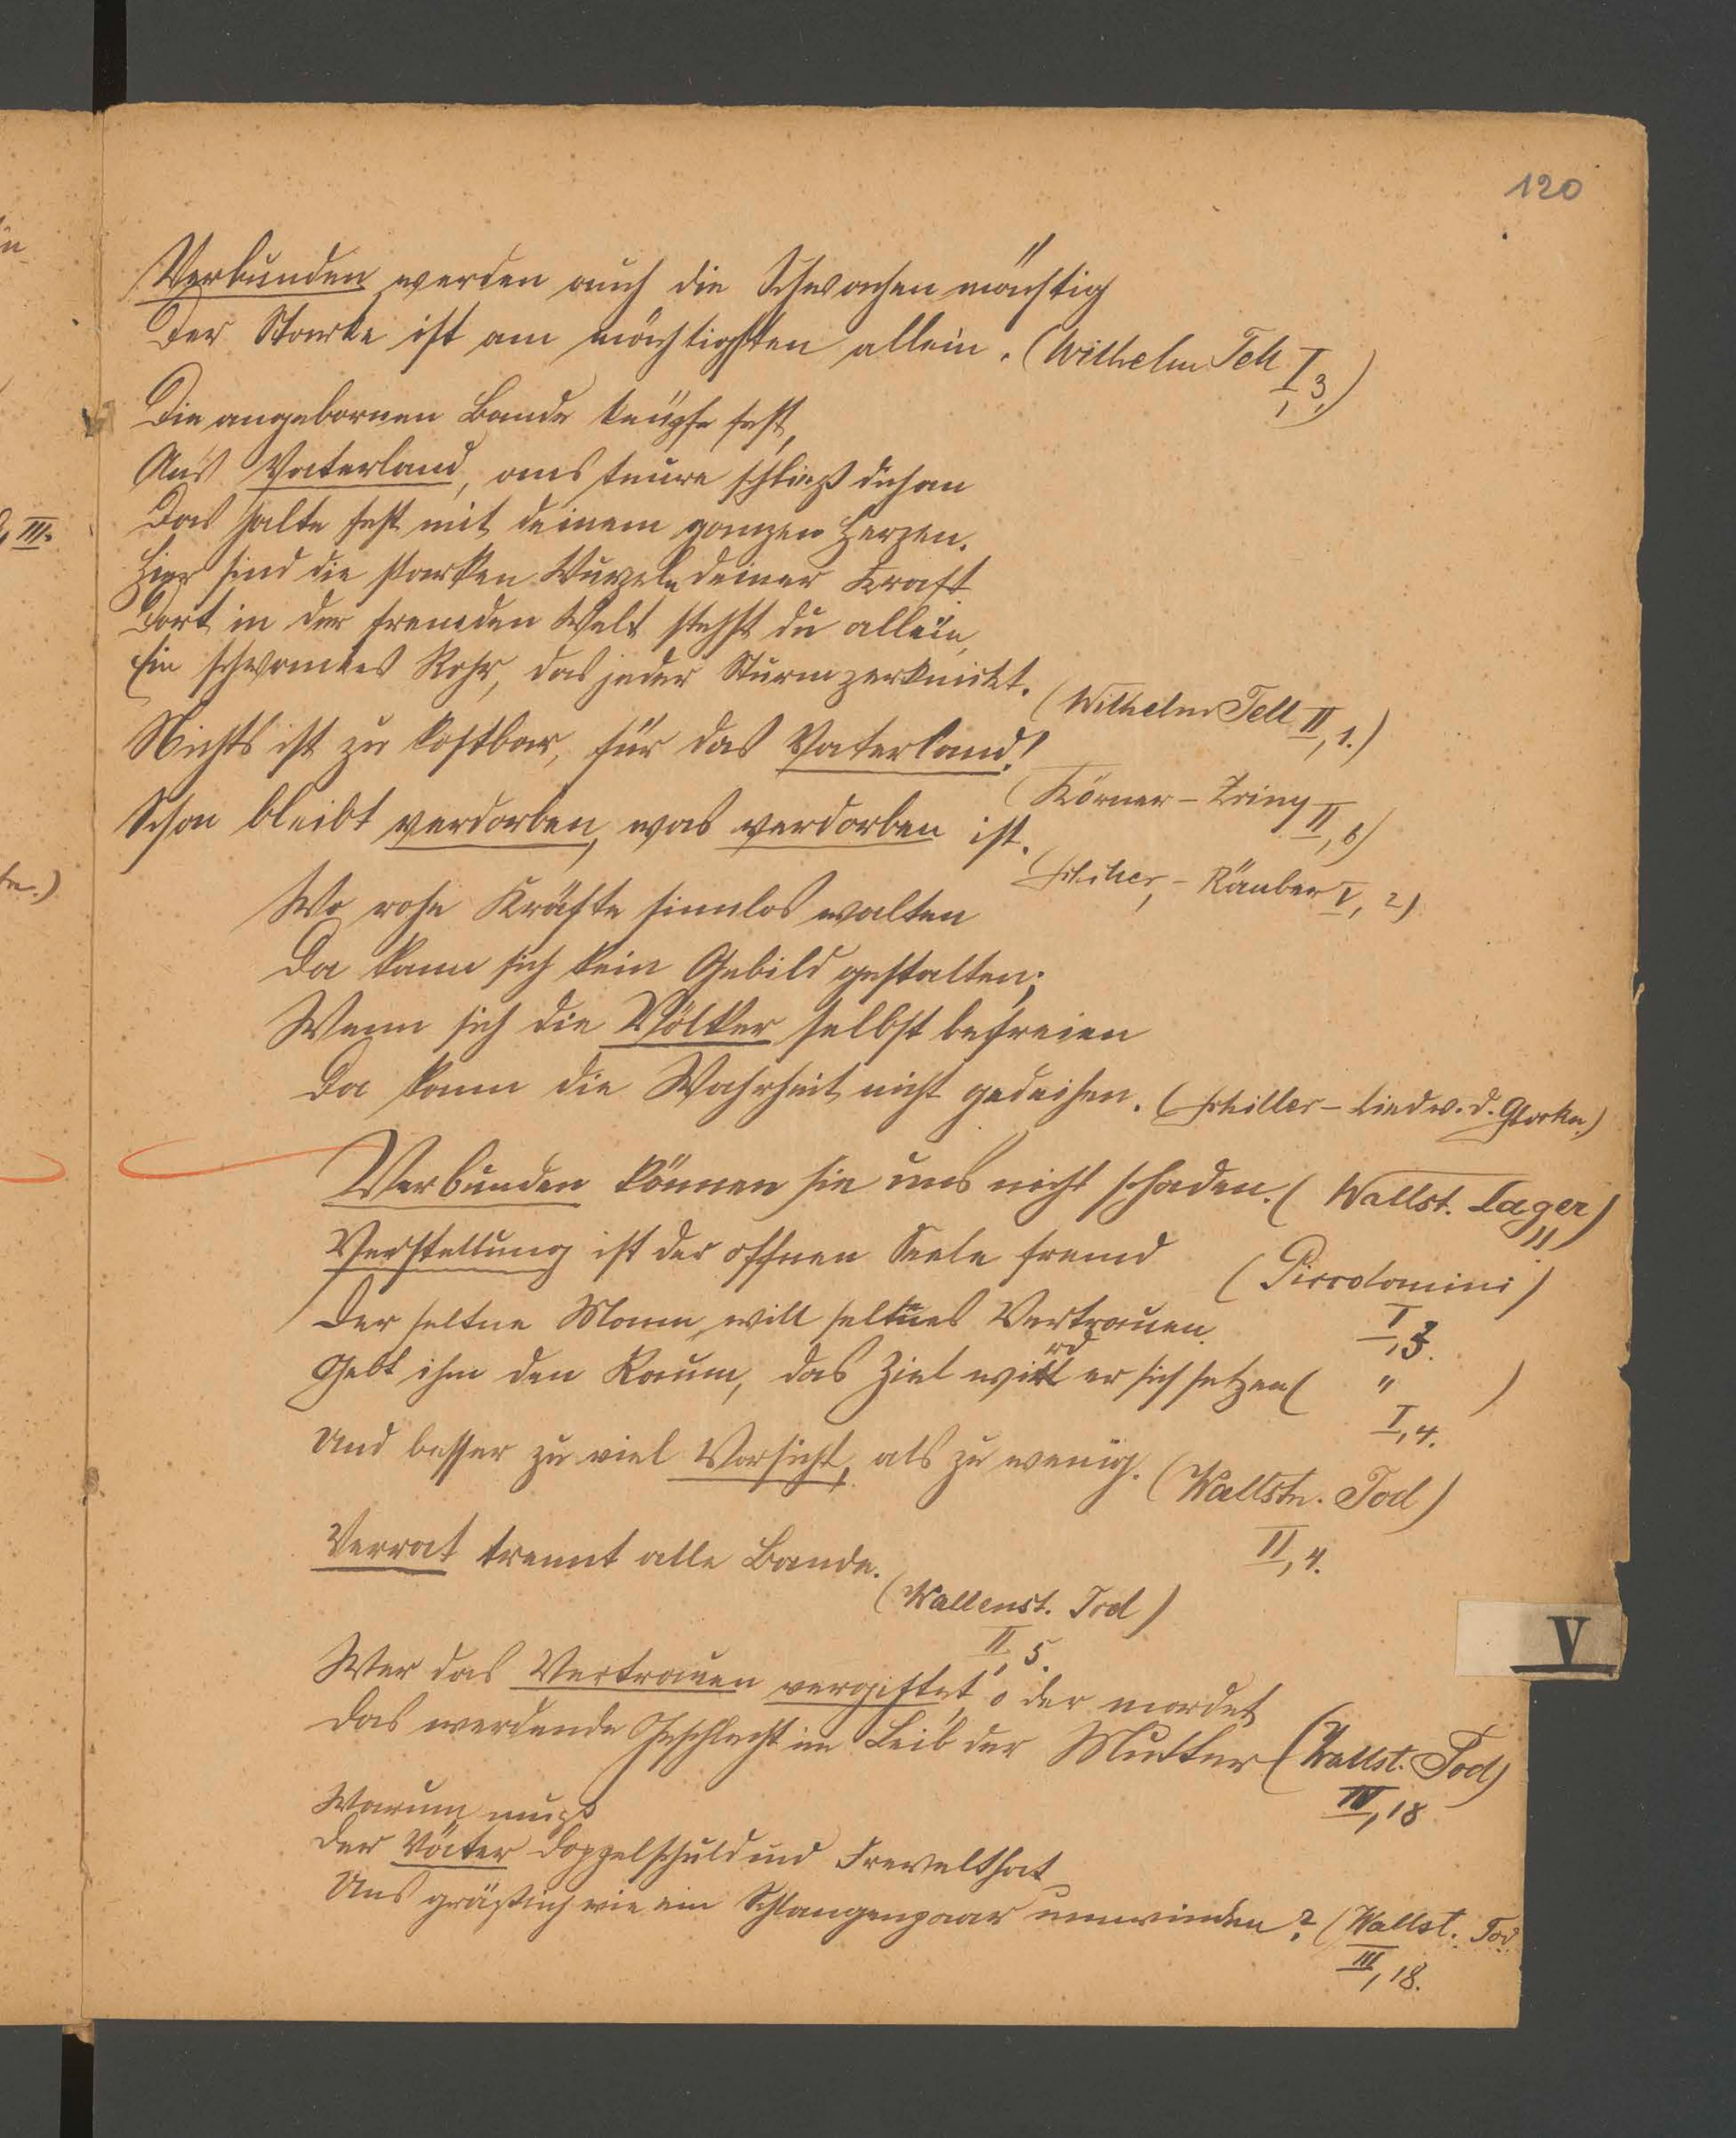 120
Verbunden werden auch die Schwachen mächtig
Der Starke ist am mächtigsten allein. (Wilhelm Tell I, 3.)
Die angebornen Bande knüpfe fest,
Ans Vaterland, ans teure schließ dich an
Das halte fest mit deinem ganzen Herzen.
Hier sind die starken Wurzeln deiner Kraft
Dort in der fremden Welt stehst du allein,
Ein schwankes Rohr, das jeder Sturm zerknickt. (Wilhelm Tell II, 1.)
Nichts ist zu kostbar, für das Vaterland! (Körner – Zriny II, 6)
Schon bleibt verdorben, was verdorben ist. (Schiller, – Räuber I, 2)
Wo rohe Kräfte sinnlos walten
Da kann sich kein Gebild gestalten;
Wenn sich die Völker selbst befreien
Da kann die Wahrheit nicht gedeihen. (Schiller – Lied v. d. Glocke.)
Verbunden können sie uns nicht schaden. (Wallst. Lager) 11
Verstellung ist der offnen Seele fremd (Piccolomini) I, 3.
Der seltne Mann will seltnes Vertrauen.
Gebt ihm den Raum, das Ziel wird er sich setzen ( " ) I, 4.
Und besser zu viel Vorsicht, als zu wenig. (Wallstn. Tod) II, 4.
Verrat trennt alle Bande. (Wallenst. Tod) II, 5.
Wer das Vertrauen vergiftet, o der mordet
Das werdende Geschlecht im Leib der Mutter (Wallst. Tod) III, 18
Warum muß
Der Väter Doppelschuld und Frevelthat
Uns gräßlich wie ein Schlangenpaar umwinden? (Wallst. Tod III, 18.
V